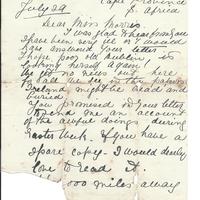 Cape Province
July 29 S. Africa
Dear Miss Morris
I was glad to hear from you
I have been very ill or I would
have answered your letter
I hope poor old Dublin is
looking herself again!
We get no news out here
to all the in the papers
Ireland might be dead and
buried
You promised in your letter
to send me an account
of the awful doings during
Easter Week. If you have a
spare copy I would dearly
love to read it.
000 miles away